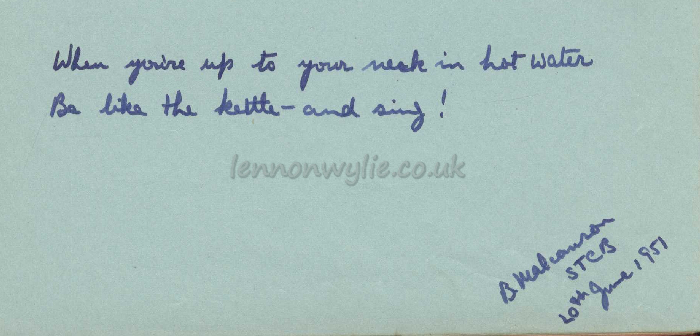 When you're up to your neck in hot water
Be like the kettle - and sing!
lennonwylie.co.uk
B Malcomson
STCB
20th June 1951